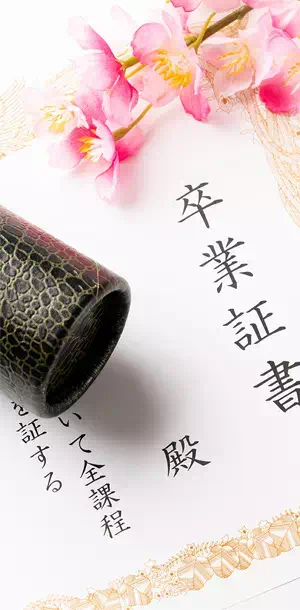 卒業証書
殿
いて全課程
を証する